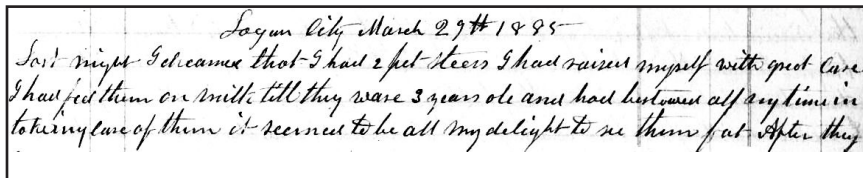 Logan City March 29th 1885
Last night I dreamed that I had 2 pet steers I had raised myself with great Care
I had fed them on milk till they ware 3 years old and had bestowed all my time in
takeing Care of them it seemed to be all my delight to see them fat After they